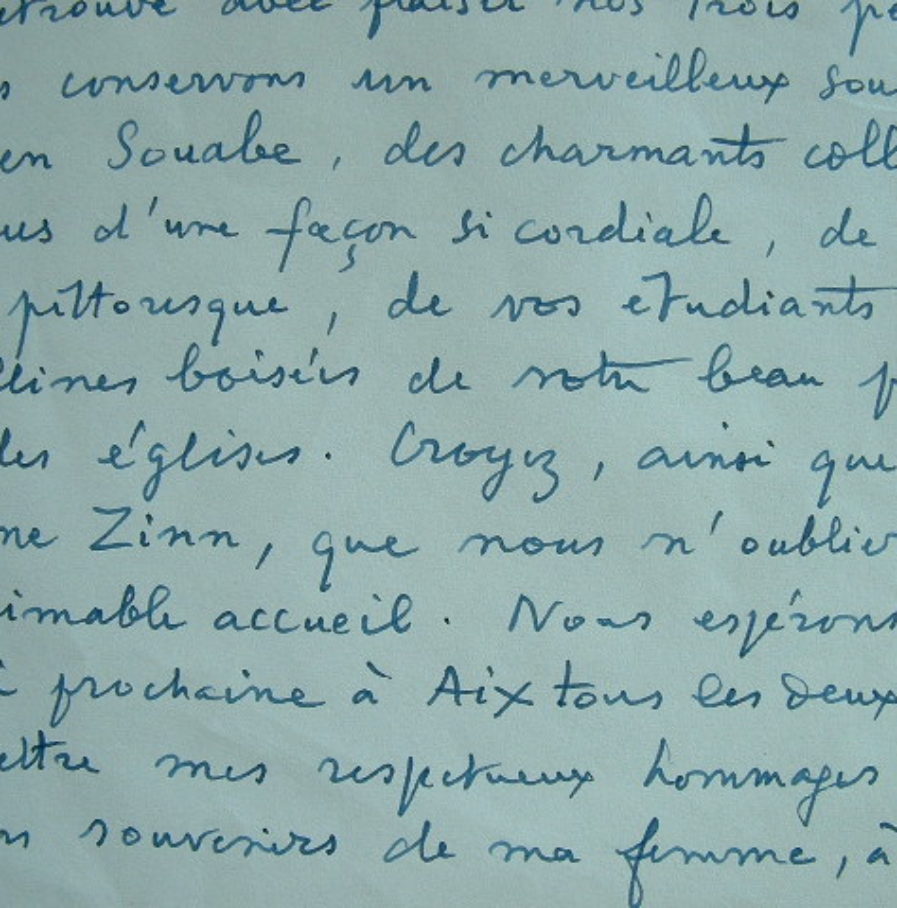 etrouvé avec plaisir nos trois pe
s conservons un merveilleux sou
en Souabe, des charmants coll
us d'une façon si cordiale, de
pittoresque, de vos etudiants
llines boisées de votre beau p
des églises. Croyez, ainsi que
me Zinn, que nous n'oublier
imable accueil. Nous espérons
prochaine à Aix tous les deux
ettre mes respectueux hommages
ns souvenirs de ma femme, à